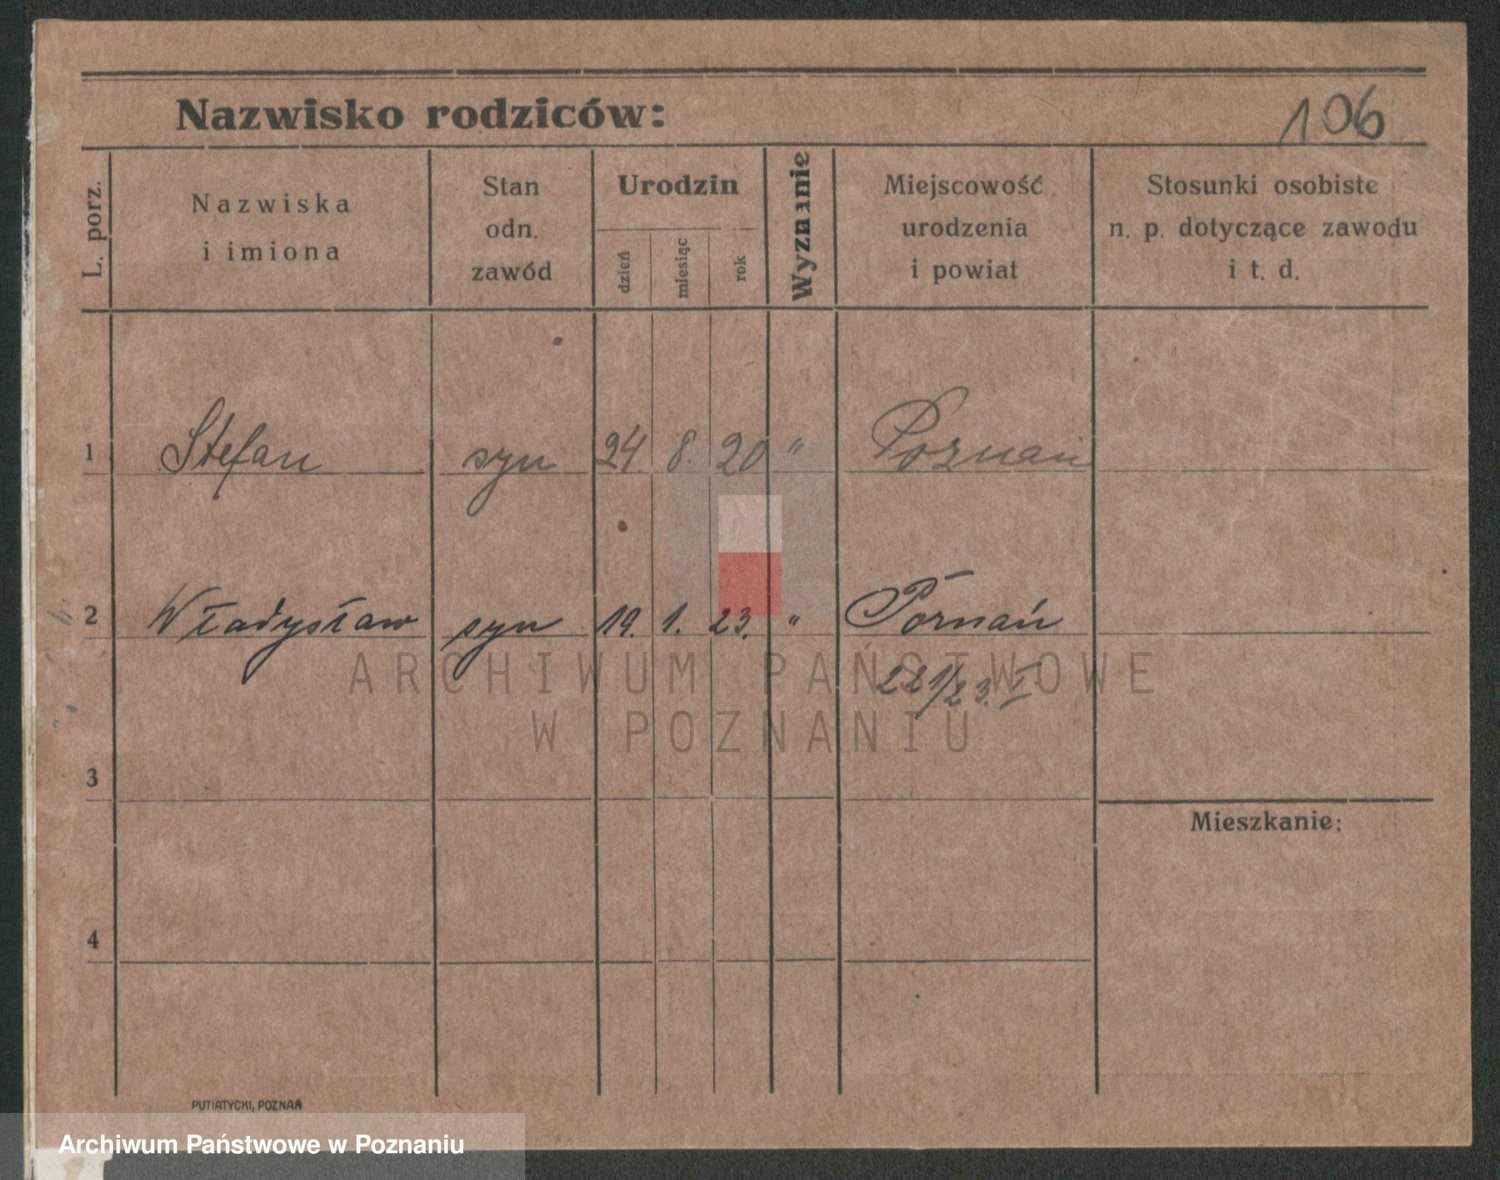 Nazwisko rodziców:
106
L. porz.
Nazwiska
i imiona
Stan
odn.
zawód
Urodzin
dzień
miesiąc
rok
Wyznanie
Miejscowość
urodzenia
i powiat
Stosunki osobiste
n. p. dotyczące zawodu
i t. d.
1 Stefan syn 24. 8. 20 " Poznań
2 Władysław syn 19. 1. 23. " Poznań
ARCHIWUM PAŃSTWOWE
W POZNANIU
3
Mieszkanie:
4
PUTIATYCKI, POZNAŃ
Archiwum Państwowe w Poznaniu